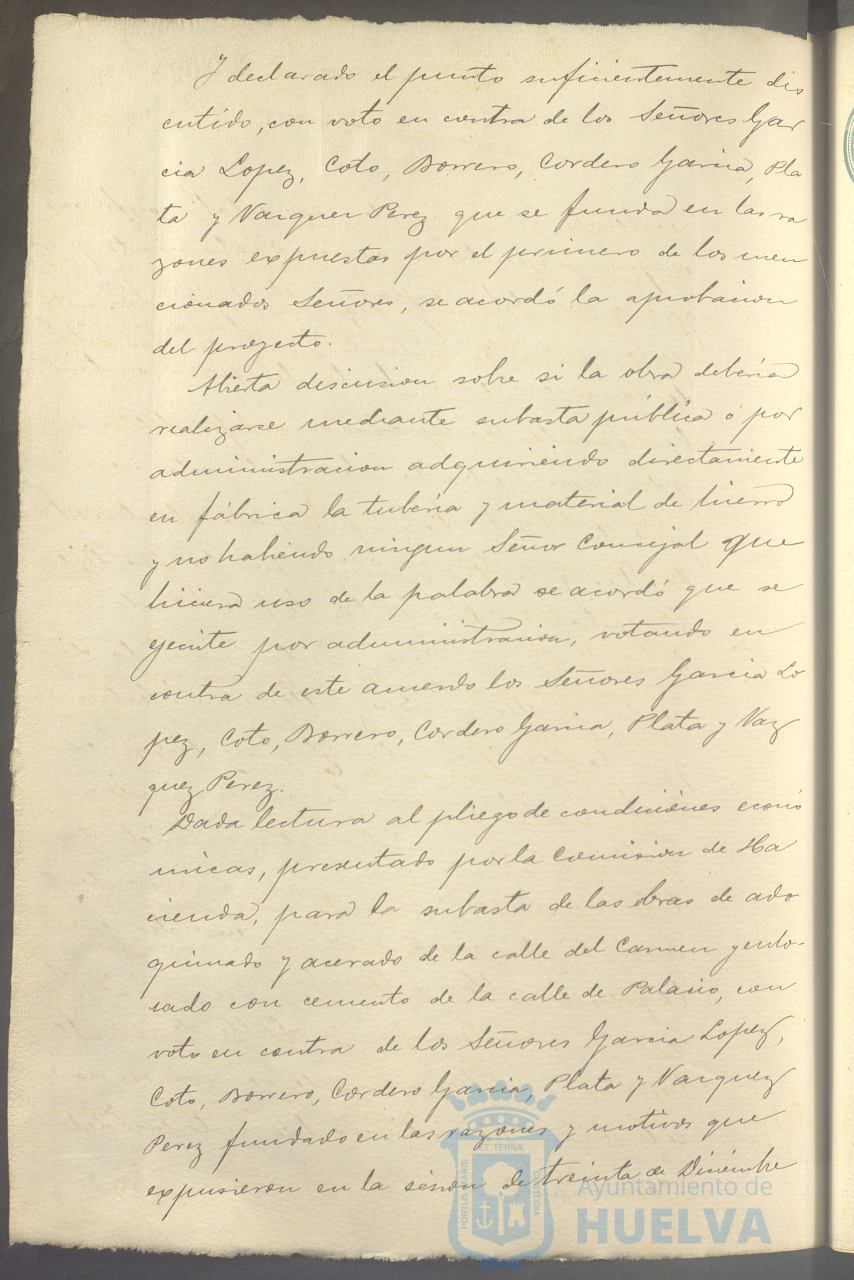 Y declarado el punto suficientemente dis
cutido, con voto en contra de los Señores Gar
cia Lopez, Coto, Borrero, Cordero Garcia, Pla
ta y Vazquez Perez que se funda en las ra
zones expuestas por el primero de los men
cionados Señores, se acordó la aprobacion
del proyecto.
Abierta discusion sobre si la obra deberia
realizarse mediante subasta pública o por
administracion adquiriendo directamente
en fábrica la tuberia y material de hierro
y no habiendo ningun Señor Concejal que
hiciera uso de la palabra se acordó que se
ejecute por administracion, votando en
contra de este acuerdo los Señores Garcia Lo
pez, Coto, Borrero, Cordero Garcia, Plata y Vaz
quez Perez.
Dada lectura al pliego de condiciones econó
micas, presentado por la Comision de Ha
cienda, para la subasta de las obras de ado
quinado y acerado de la calle del Carmen y enlo-
sado con cemento de la calle de Palacio, con
voto en contra de los Señores Garcia Lopez,
Coto, Borrero, Cordero Garcia, Plata y Vazquez
Perez fundado en las razones y motivos que
expusieron en la sesion de treinta de Diciembre
PORTUS MARIS
ET TERRÆ
CUSTODIA
Ayuntamiento de
HUELVA